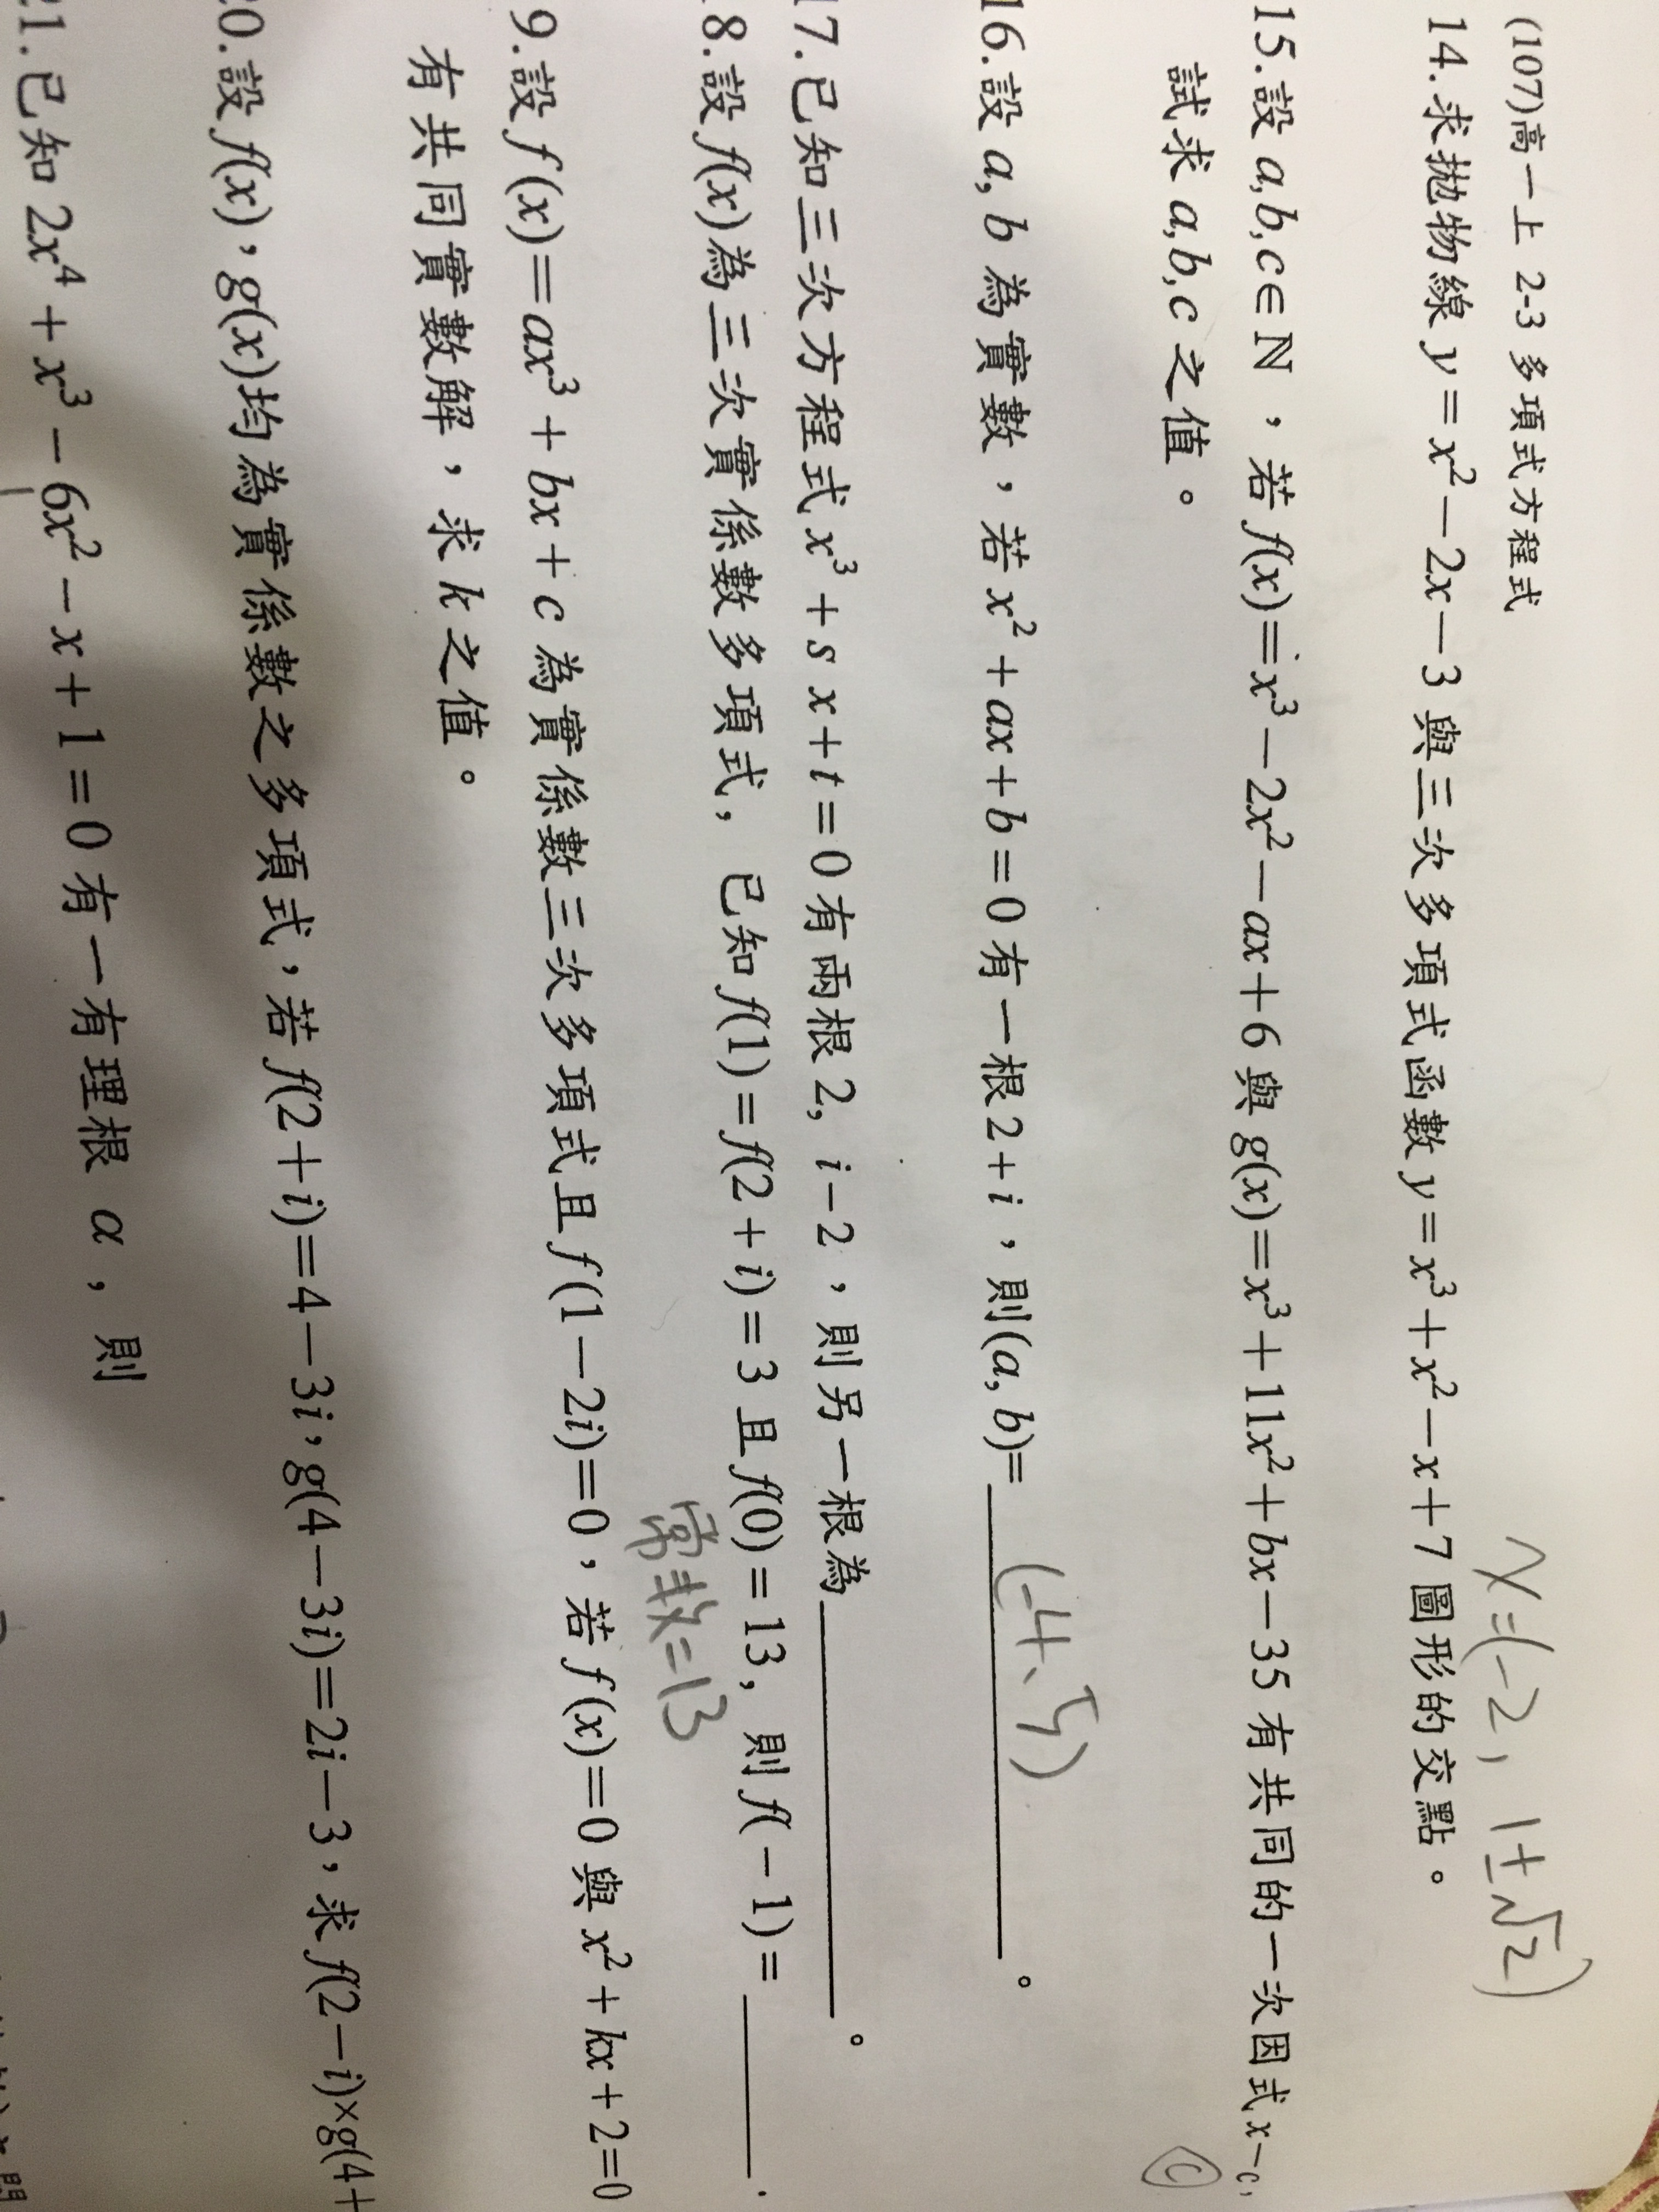 (107)高一上 2-3 多項式方程式
x=(-2, 1±√2)
14.求拋物線 y=x²-2x-3 與三次多項式函數 y=x³+x²-x+7 圖形的交點。
15.設 a,b,c∈ℕ,若 f(x)=x³-2x²-ax+6 與 g(x)=x³+11x²+bx-35 有共同的一次因式 x-c,
試求 a,b,c 之值。
C
(-4、5)
16.設 a, b 為實數,若 x²+ax+b=0 有一根 2+i,則(a, b)=__________。
17.已知三次方程式 x³+s x+t=0 有兩根 2, i-2,則另一根為__________。
8.設 f(x)為三次實係數多項式, 已知 f(1)=f(2+i)=3 且 f(0)=13, 則 f(-1)=________.
常數=13
9.設 f(x)=ax³+bx+c 為實係數三次多項式且 f(1-2i)=0,若 f(x)=0 與 x²+kx+2=0
有共同實數解,求 k 之值。
0.設 f(x),g(x)均為實係數之多項式,若 f(2+i)=4-3i,g(4-3i)=2i-3,求 f(2-i)×g(4+
21.已知 2x⁴+x³-6x²-x+1=0 有一有理根 α,則